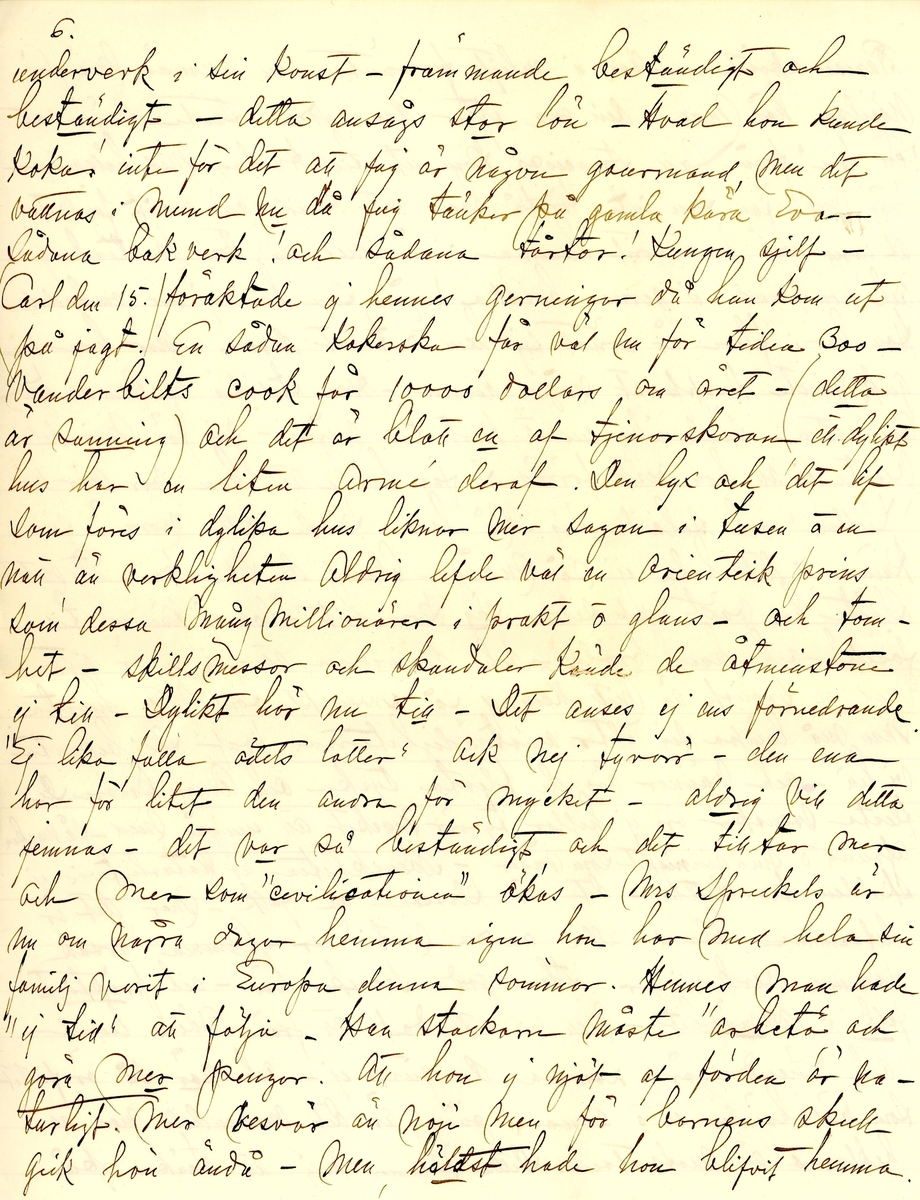 6.
underverk i sin konst – främmande beständigt och
beständigt – detta ansågs stor lön – Hvad hon kunde
koka! inte för det att jag är någon gourmand, men det
vattnas i mund nu då jag tänker på gamla kära Eva –
sådana bakverk! och sådana tårtor! Kungen sjelf –
(Carl den 15.) föraktade ej hennes gerningar då han kom ut
på jagt. En sådan kokerska får väl nu för tiden 300 –
Vanderbilts cook får 10000 dollars om året – (detta
är sanning) och det är blott en af tjenarskaran ett dylikt
hus har en liten armé deraf. Den lyx och det lif
som föres i dylika hus liknar mer sagan i tusen o en
natt än verkligheten Aldrig lefde väl en orientisk prins
som dessa mång millionärer i prakt o glans – och tom-
het – skillsmessor och skandaler kände de åtminstone
ej till – Dylikt hör nu till – Det anses ej ens förnedrande.
"Ej lika falla ödets lotter" Ack nej tyvärr – den ena
har för litet den andra för mycket – aldrig vill detta
jemnas – det var så beständigt och det tilltar mer
och mer som "civilicationen" ökas – Mrs Spreckels är
nu om några dagar hemma igen hon har med hela sin
familj varit i Europa denna sommar. Hennes man hade
"ej tid" att följa – Han stackarn måste "arbeta" och
göra mer pengar. Att hon ej njöt af färden är na-
turligt. Mer besvär än nöje men för barnens skull
gick hon ändå – men häldst hade hon blifvit hemma.